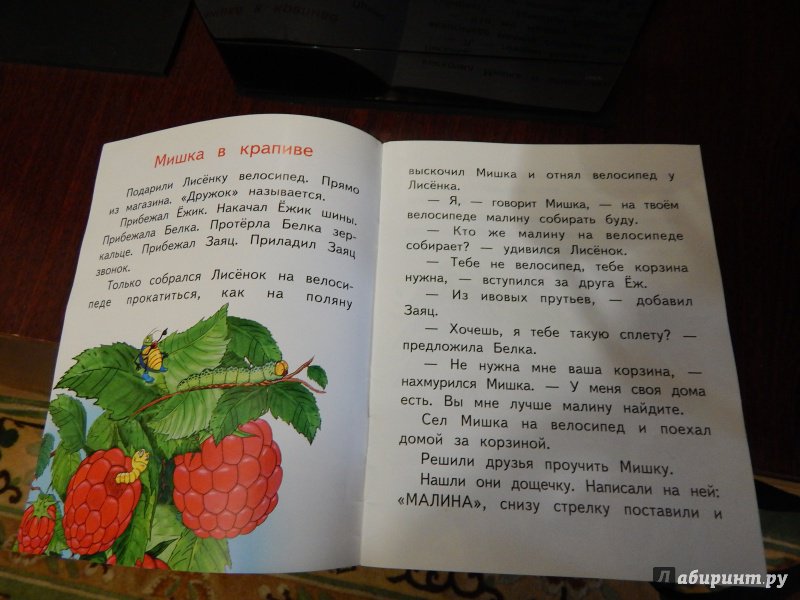 Мишка в крапиве
Подарили Лисёнку велосипед. Прямо
из магазина. «Дружок» называется.
Прибежал Ёжик. Накачал Ёжик шины.
Прибежала Белка. Протёрла Белка зер-
кальце. Прибежал Заяц. Приладил Заяц
звонок.
Только собрался Лисёнок на велоси-
педе прокатиться, как на поляну
выскочил Мишка и отнял велосипед у
Лисёнка.
— Я, — говорит Мишка, — на твоём
велосипеде малину собирать буду.
— Кто же малину на велосипеде
собирает? — удивился Лисёнок.
— Тебе не велосипед, тебе корзина
нужна, — вступился за друга Ёж.
— Из ивовых прутьев, — добавил
Заяц.
— Хочешь, я тебе такую сплету? —
предложила Белка.
— Не нужна мне ваша корзина, —
нахмурился Мишка. — У меня своя дома
есть. Вы мне лучше малину найдите.
Сел Мишка на велосипед и поехал
домой за корзиной.
Решили друзья проучить Мишку.
Нашли они дощечку. Написали на ней:
«МАЛИНА», снизу стрелку поставили и
лабиринт.ру